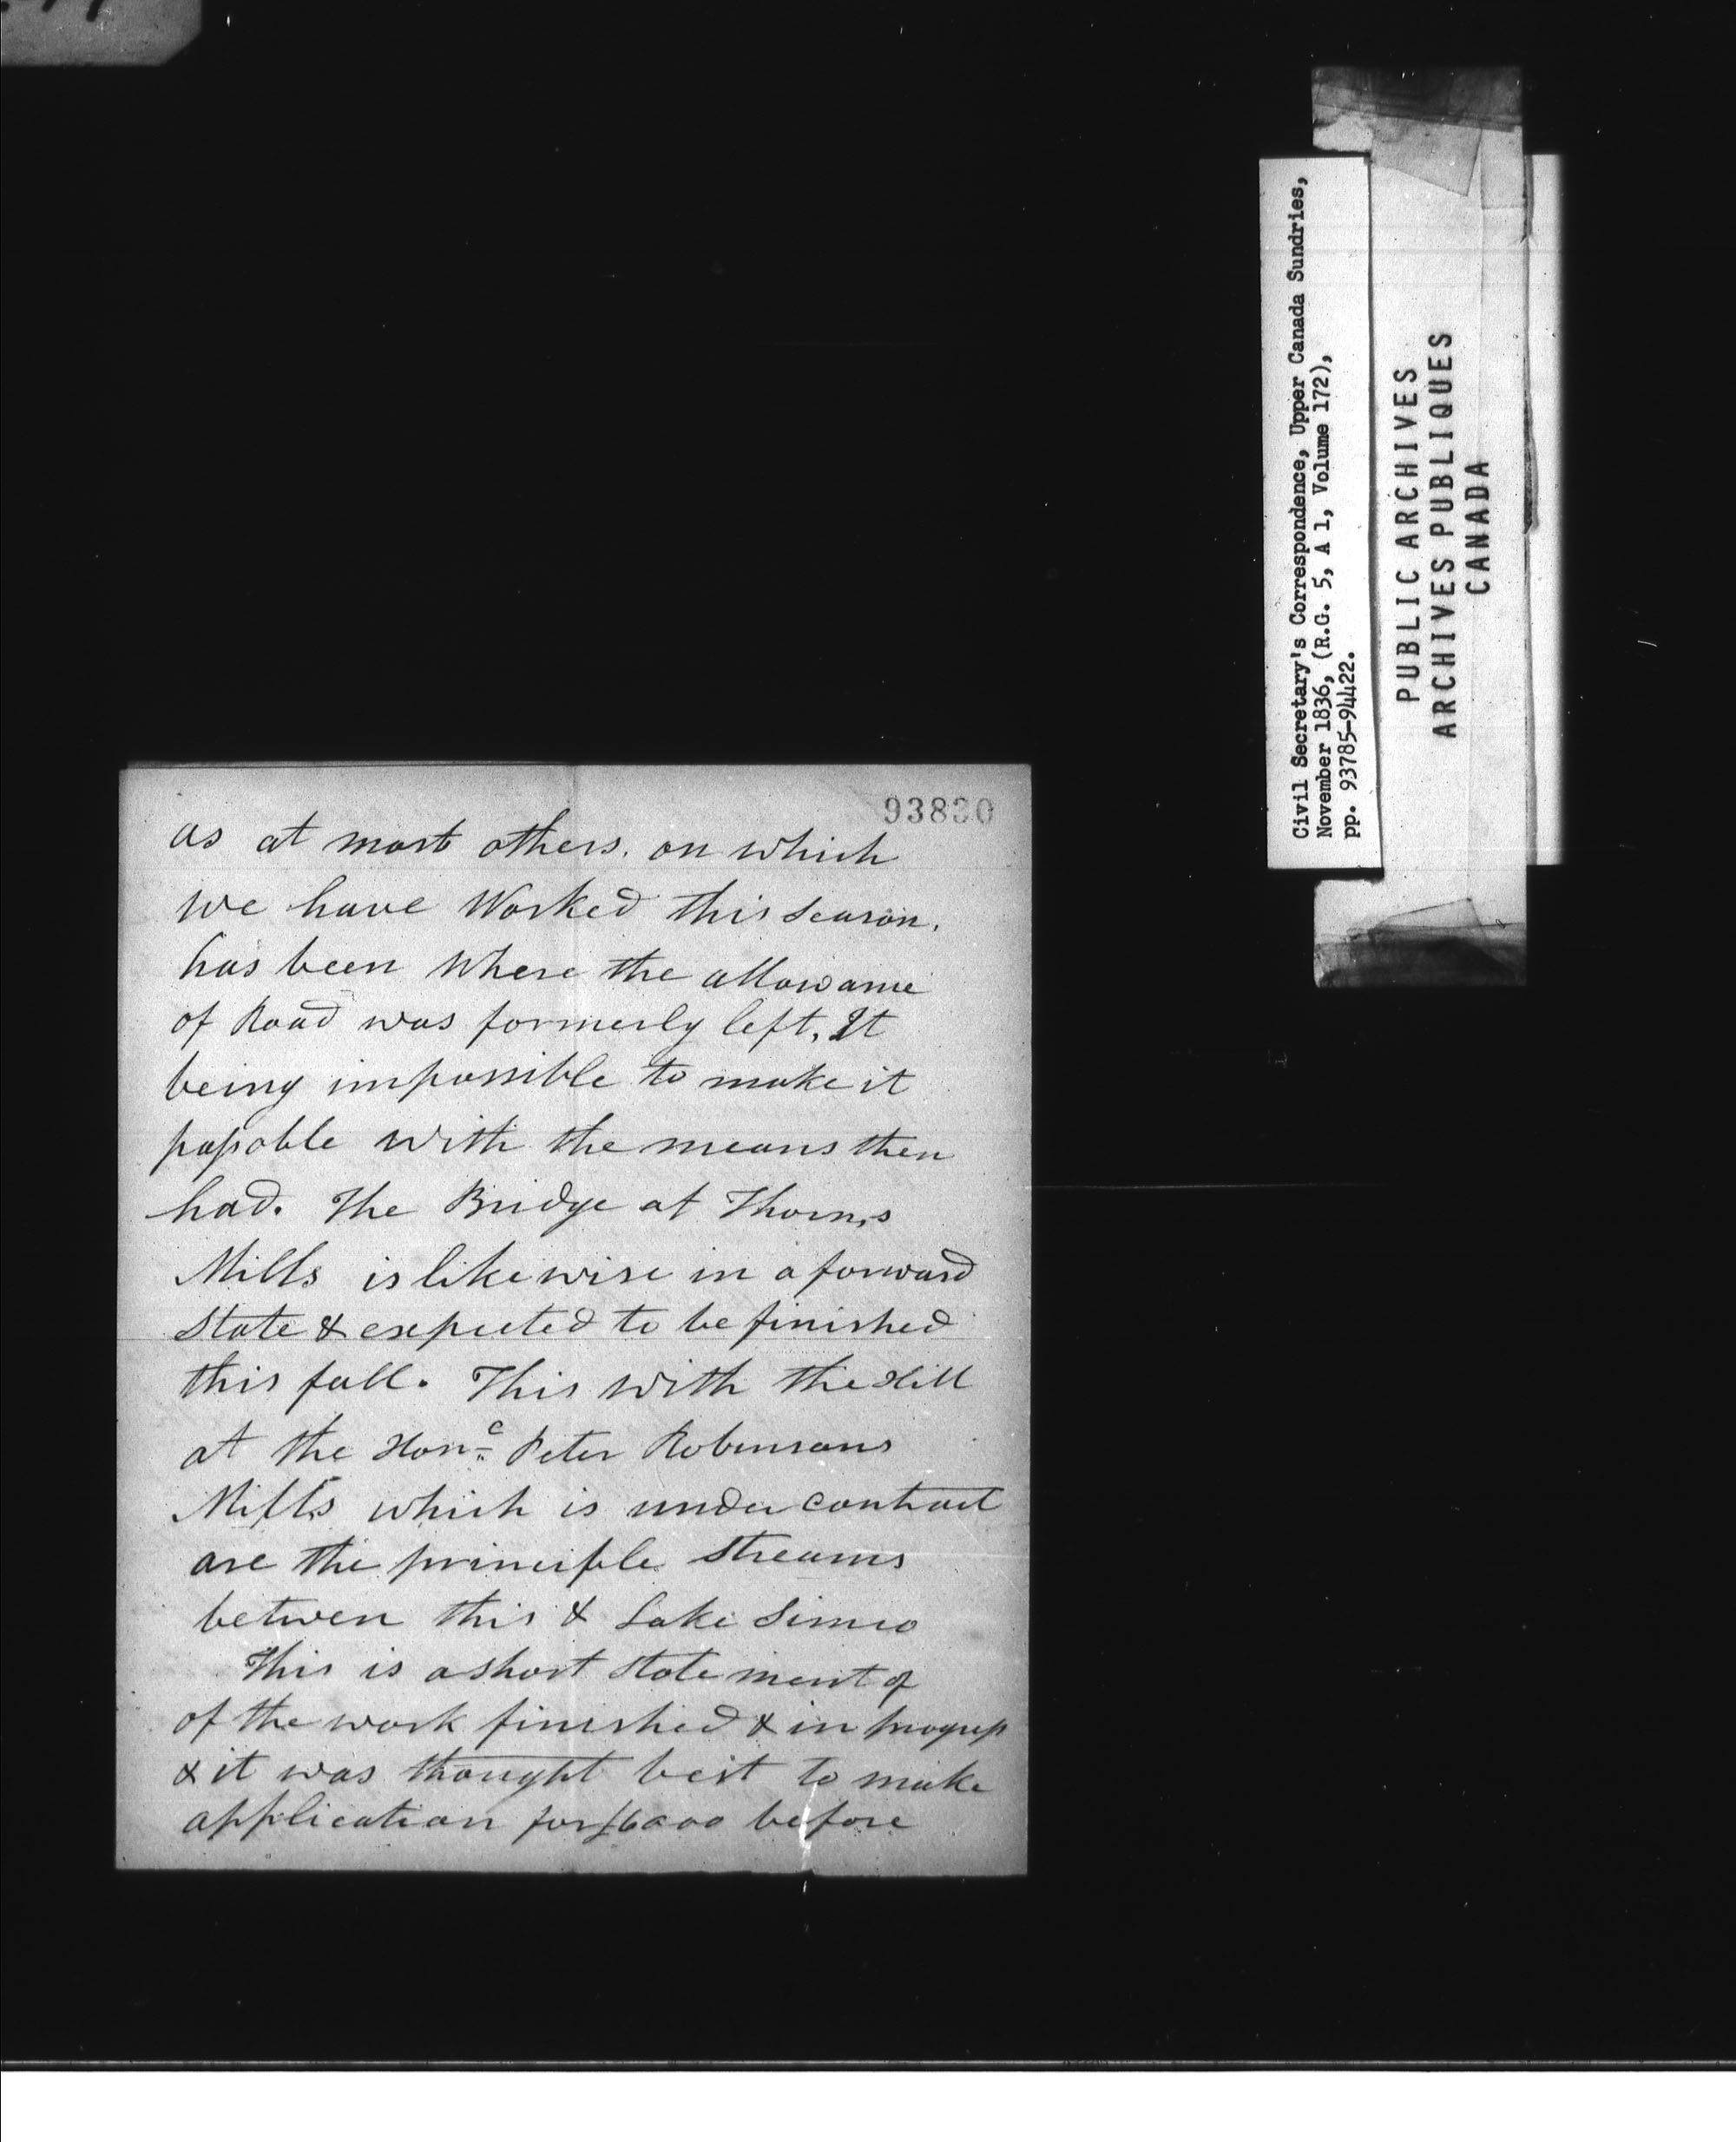 93830
as at most others. on which
we have Worked this season.
has been where the allowance
of Road was formerly left. It
being impossible to make it
passable with the means then
had. The Bridge at Thorn,s
Mills is likewise in a forward
State & expected to be finished
this fall. This with the Hill
at the Honᵉ Peter Robinsons
Mills which is under contract
are the principle streams
betwen this & Lake Simco
This is a short statement of
of the work finished & in progress
& it was thought best to make
application for £6000 before
Civil Secretary's Correspondence, Upper Canada Sundries,
November 1836, (R.G. 5, A 1, Volume 172),
pp. 93785-94422.
PUBLIC ARCHIVES
ARCHIVES PUBLIQUES
CANADA